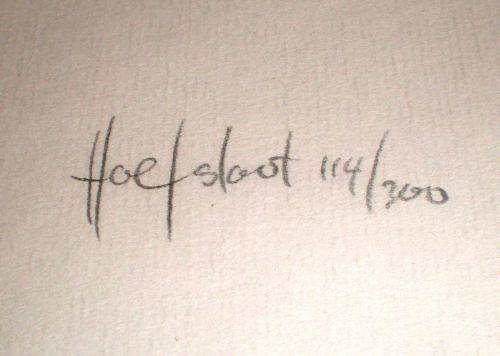 Hoefsloot 114/300